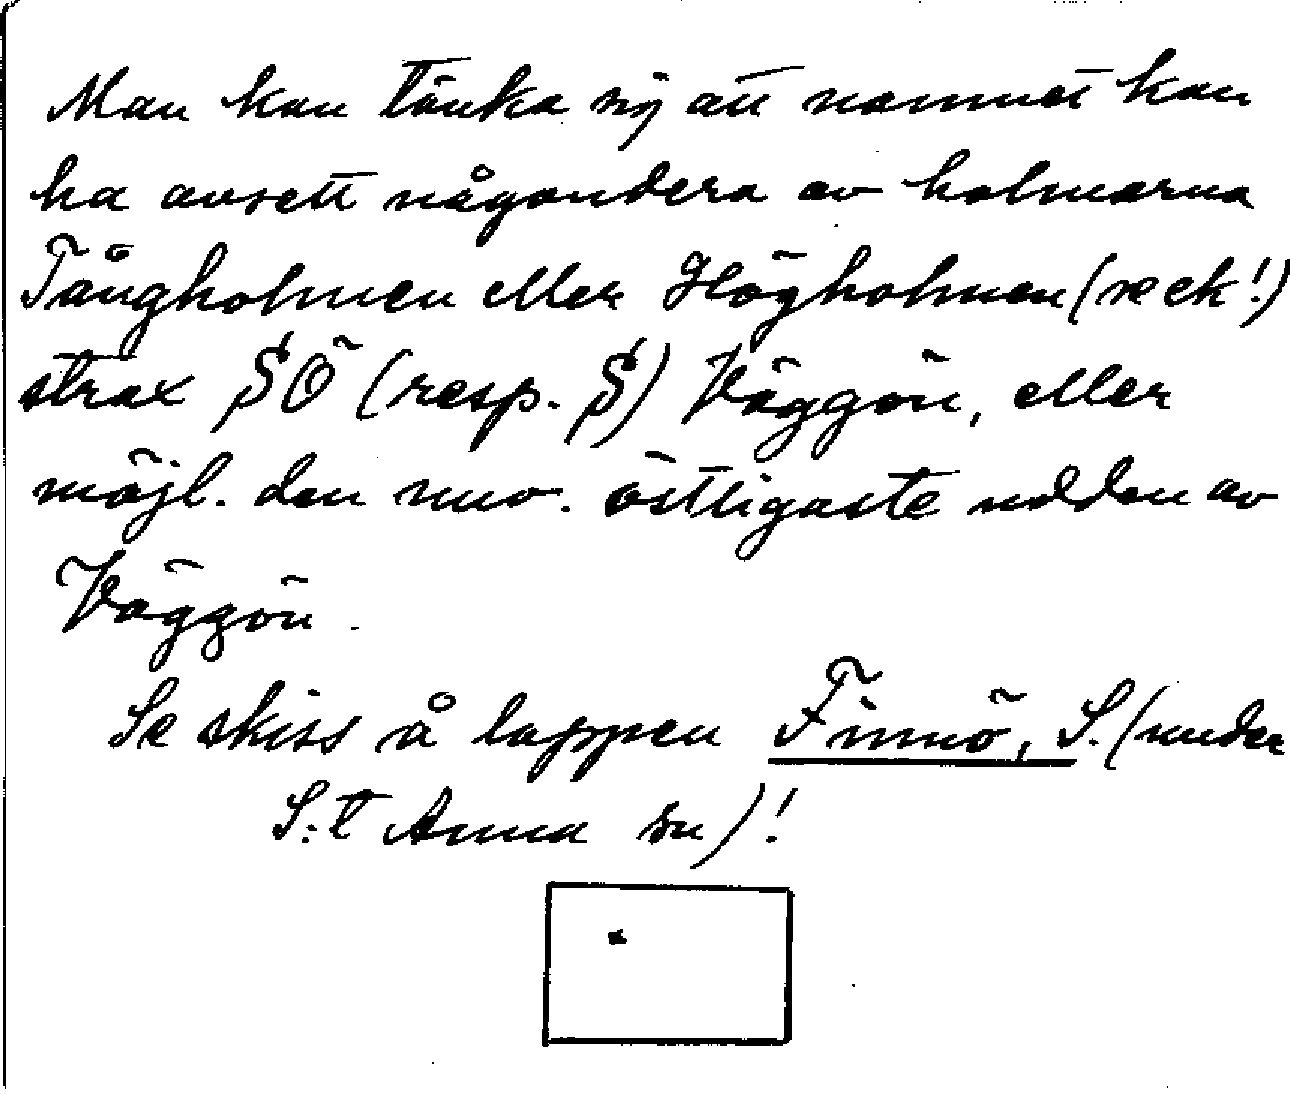 Man kan tänka sig att namnet kan
ha avsett någondera av holmarna
Tångholmen eller Högholmen (se ek!)
strax SÖ (resp. S) Väggön, eller
möjl. den nuv. östligaste udden av
Väggön.
Se skiss å lappen Finnö, S. (under
S:t Anna sn)!